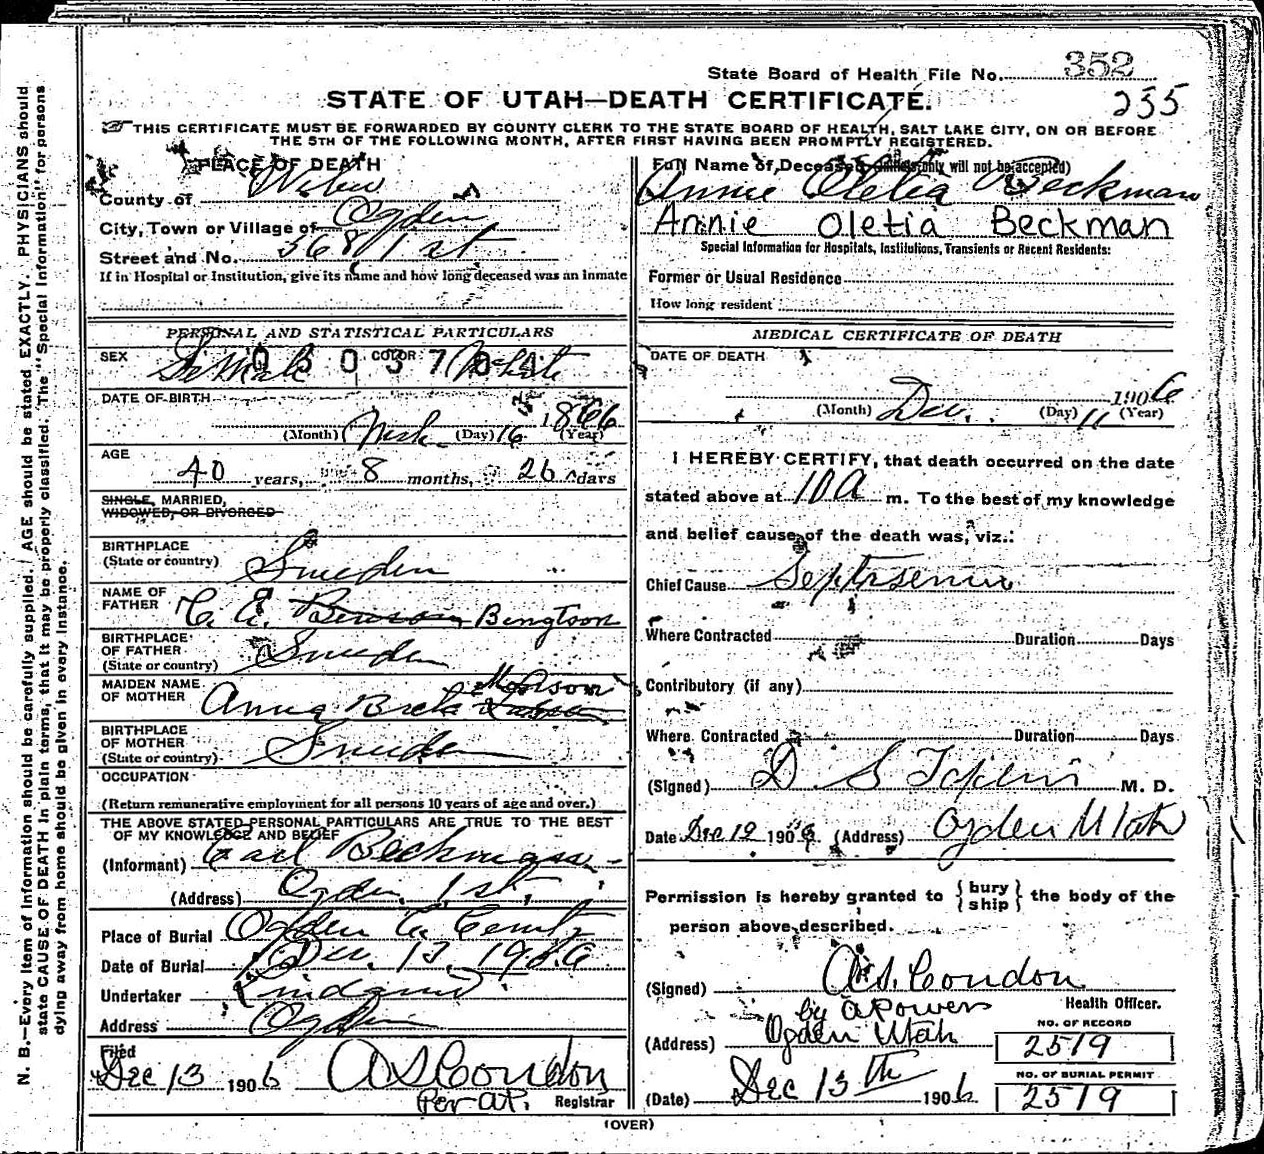 State Board of Health File No. 352
235
STATE OF UTAH—DEATH CERTIFICATE.
THIS CERTIFICATE MUST BE FORWARDED BY COUNTY CLERK TO THE STATE BOARD OF HEALTH, SALT LAKE CITY, ON OR BEFORE
THE 5TH OF THE FOLLOWING MONTH, AFTER FIRST HAVING BEEN PROMPTLY REGISTERED.
N. B.—Every item of Information should be carefully supplied. AGE should be stated EXACTLY. PHYSICIANS should
state CAUSE OF DEATH in plain terms, that it may be properly classified. The "Special Information" for persons
dying away from home should be given in every instance.
PLACE OF DEATH
County of Weber
City, Town or Village of Ogden
Street and No. 368 1st
If in Hospital or Institution, give its name and how long deceased was an inmate
PERSONAL AND STATISTICAL PARTICULARS
SEX Female COLOR White
DATE OF BIRTH
(Month) March (Day) 16 1866 (Year)
AGE
40 years, 8 months, 26 days
SINGLE, MARRIED,
WIDOWED, OR DIVORCED
BIRTHPLACE
(State or country) Sweden
NAME OF
FATHER C. E. Benson Bengtson
BIRTHPLACE
OF FATHER
(State or country) Sweden
MAIDEN NAME
OF MOTHER Anna Breta Monson
BIRTHPLACE
OF MOTHER
(State or country) Sweden
OCCUPATION
(Return remunerative employment for all persons 10 years of age and over.)
THE ABOVE STATED PERSONAL PARTICULARS ARE TRUE TO THE BEST
OF MY KNOWLEDGE AND BELIEF
(Informant) Carl Beckman
(Address) Ogden, 1st,
Place of Burial Ogden C. Cemty
Date of Burial Dec. 13, 1906
Undertaker Lindquist
Address Ogden
Filed
Dec 13 1906 A S Condon
Per A.P. Registrar
Full Name of Deceased (initials only will not be accepted)
Annie Oletia Beckman
Annie Oletia Beckman
Special Information for Hospitals, Institutions, Transients or Recent Residents:
Former or Usual Residence
How long resident
MEDICAL CERTIFICATE OF DEATH
DATE OF DEATH
1906
(Month) Dec. (Day) 11 (Year)
I HEREBY CERTIFY, that death occurred on the date
stated above at 10 A m. To the best of my knowledge
and belief cause of the death was, viz.:
Chief Cause
Where Contracted Duration Days
Contributory (if any)
Where Contracted Duration Days
(Signed) D S M. D.
Date Dec 12 1906 (Address) Ogden Utah
Permission is hereby granted to { bury ship } the body of the
person above described.
(Signed) A.S. Condon
by A Powers Health Officer.
(Address) Ogden Utah
NO. OF RECORD
2519
NO. OF BURIAL PERMIT
2519
(Date) Dec 13th 1906
(OVER)